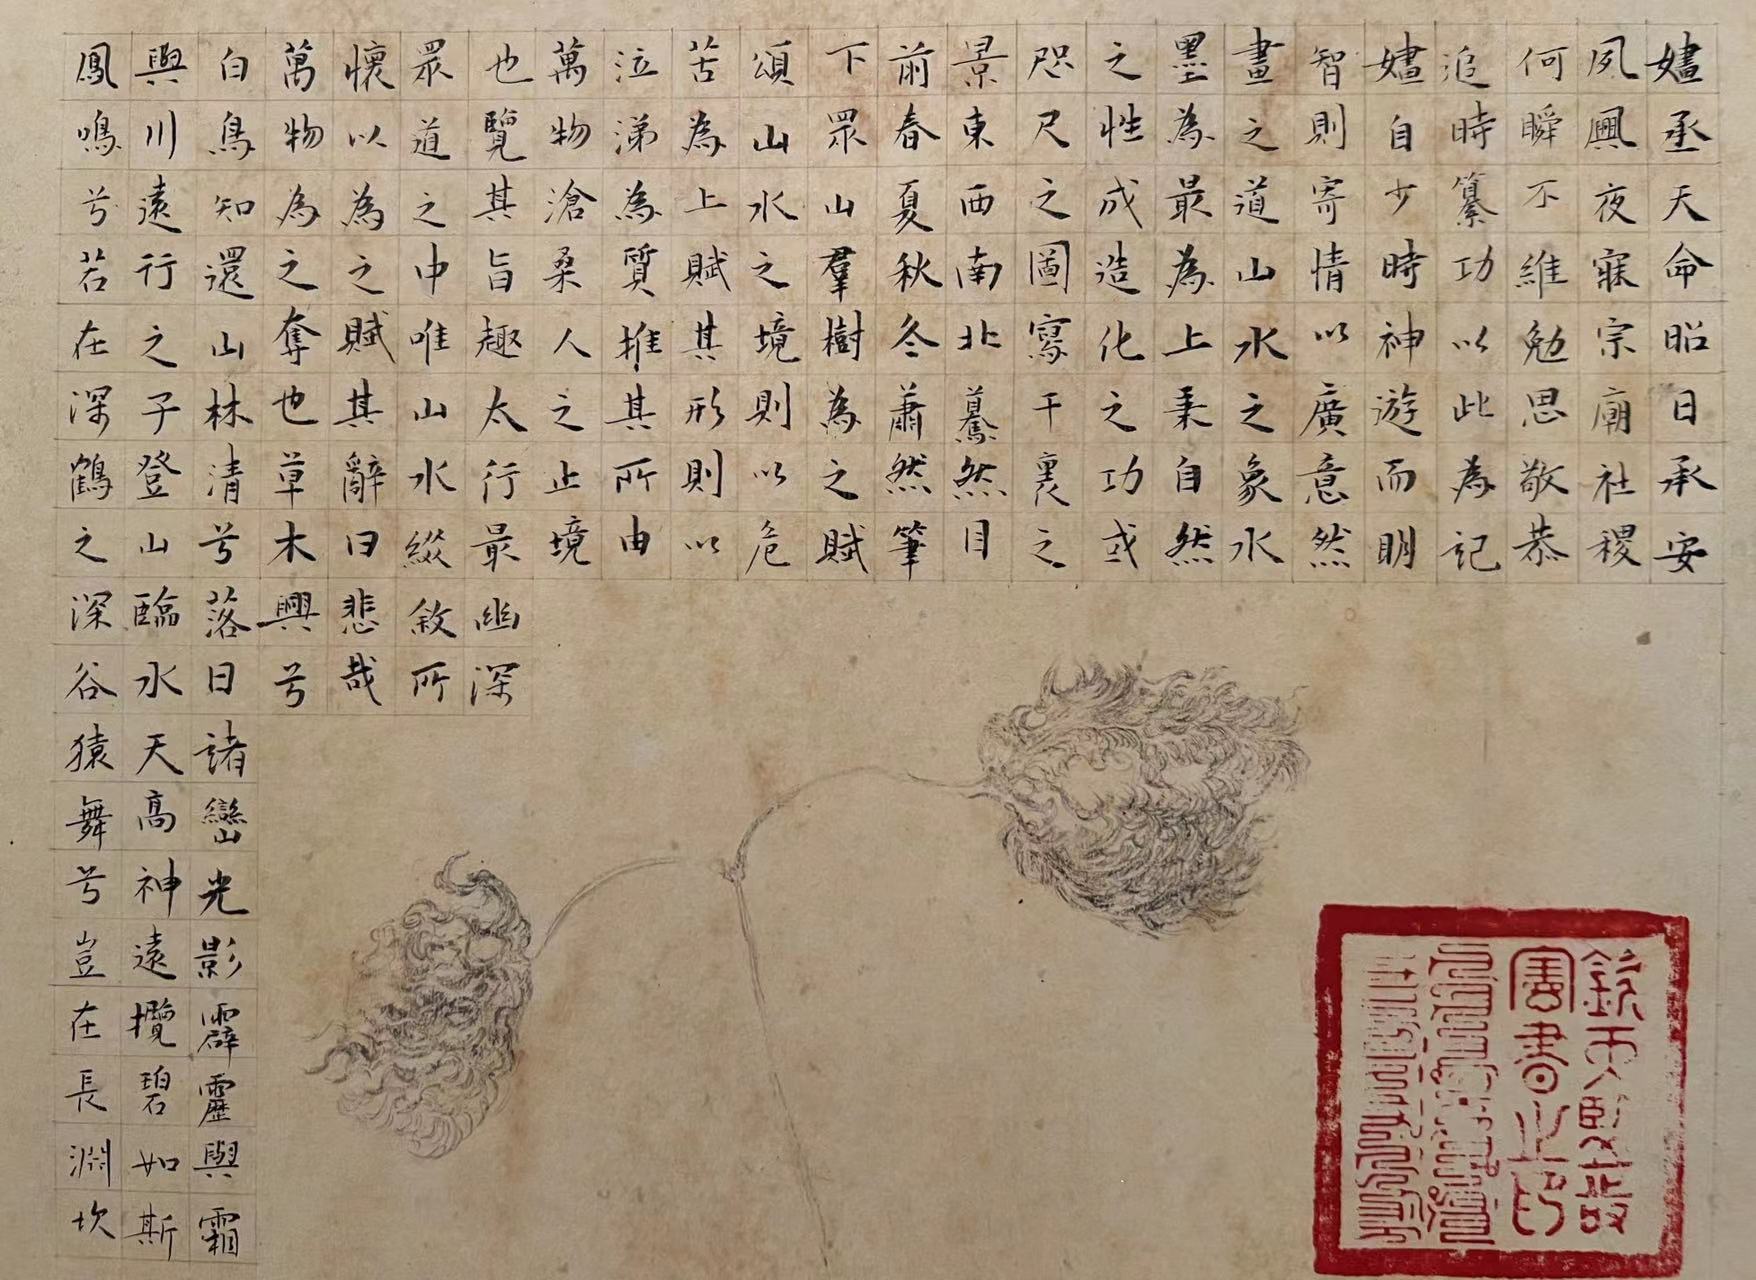 嫿丞天命昭日承安
夙興夜寐宗廟社稷
何瞬不維勉思敬恭
追時纂功以此為記
嫿自少時神遊而明
智則寄情以廣意然
畫之道山水之象水
墨為最為上秉自然
之性成造化之功或
咫尺之圖寫千裏之
景東西南北驀然目
前春夏秋冬蕭然筆
下眾山羣樹為之賦
頌山水之境則以危
苦為上賦其形則以
泣涕為質推其所由
萬物滄桑人之止境
也覽其旨趣太行最幽深
眾道之中唯山水綴敘所
懷以為之賦其辭曰悲哉
萬物為之奪也草木興兮
白鳥知還山林清兮落日諸巒光影霹靂與霜
與川遠行之子登山臨水天高神遠攬碧如斯
鳳鳴兮若在深鶴之深谷猿舞兮豈在長淵坎
書之印